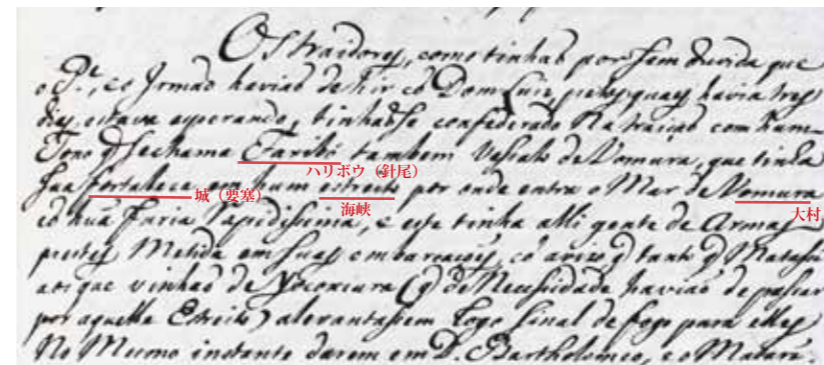 Os traidores, como tinhaõ por sem duvida que
o P.e, e o Irmaõ haviaõ de hir cõ Dom Luiz, pelos quaes havia tres
dias estava esperando, tinhaõse confederado na traiçaõ com hum
Tono q̃ se chama Faribõ tambem Vassalo de Vomura, que tinha
ハリボウ（針尾）
sua fortaleza em hum estreito por onde entra o Mar de Vomura
城（要塞）
海峡
大村
cõ huã furia rapidissima, e este tinha alli gente de Armas
prestes Metida em suas embarcações, cõ avizo q̃ tanto q̃ Matasse
aos que vinhaõ de Yocoxiura (q̃ de Necessidade haviaõ de passar
por aquelle Estreito) alevantassem logo sinal de fogo para elles
No Mesmo instante darem em D. Bartholomeo, e o Matarẽ.